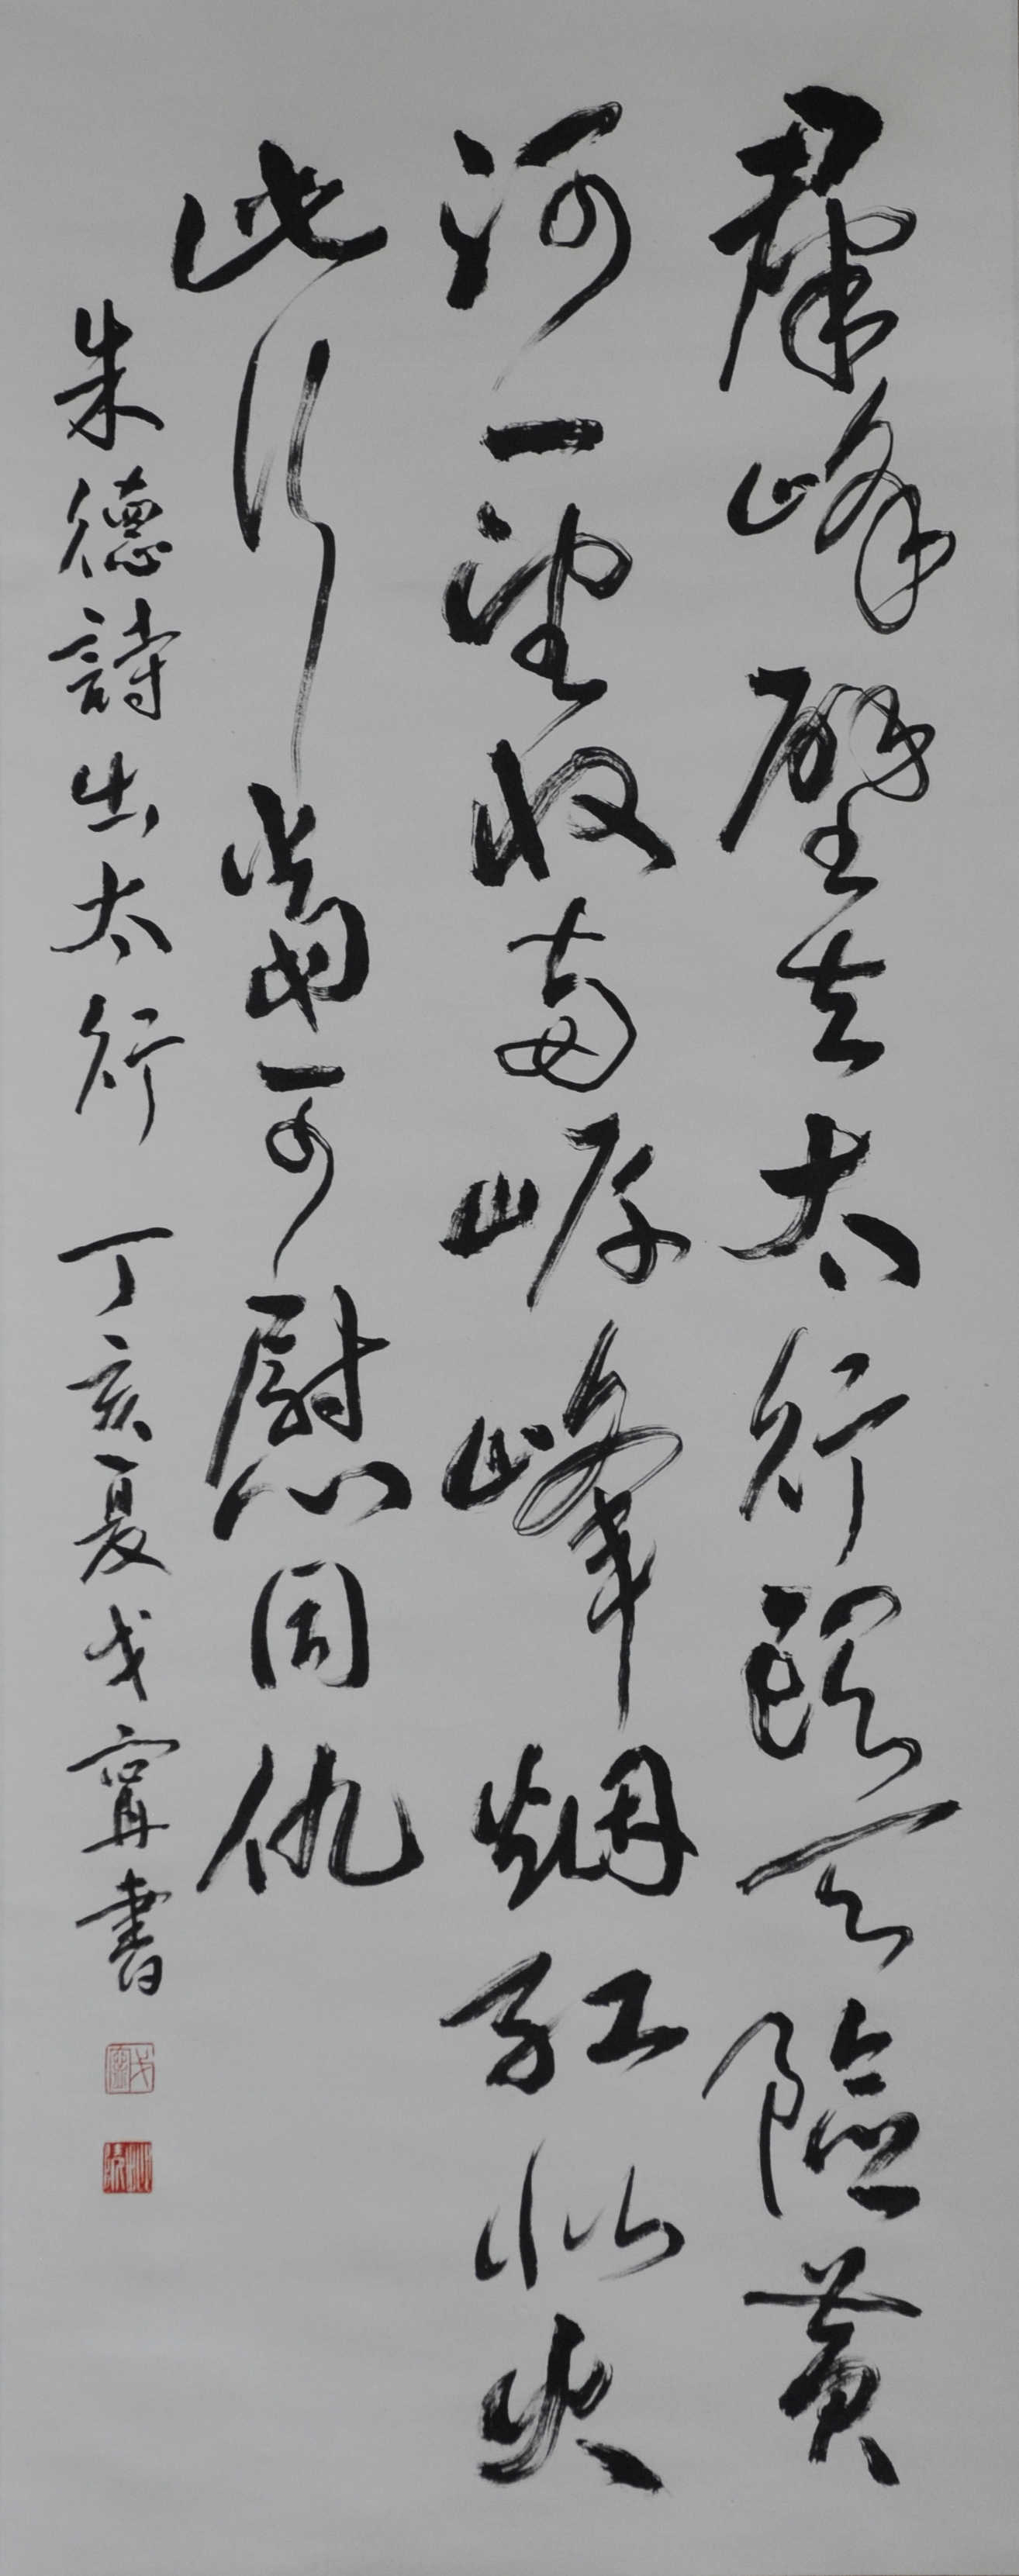 羣峰壁立太行頭天險黃
河一望收兩岸峰烟紅似火
此行當可慰同仇
朱德詩出太行 丁亥夏戈寗書